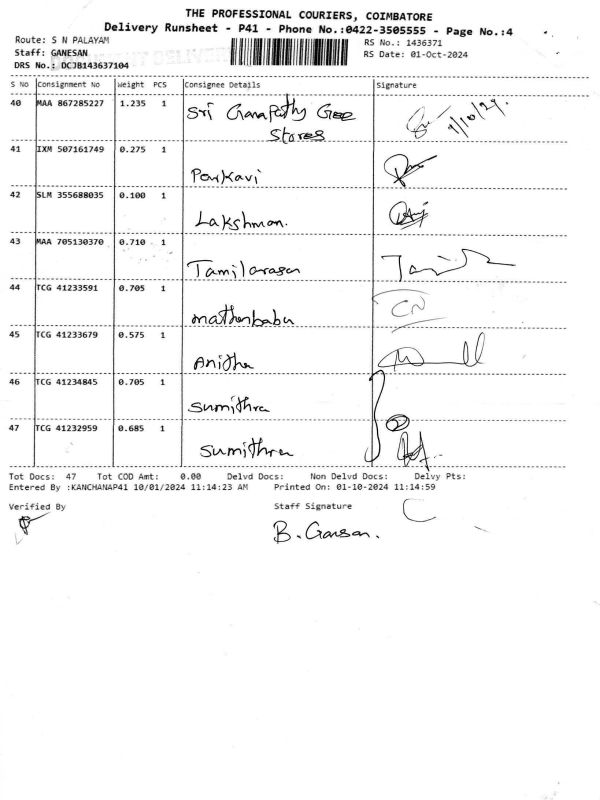 THE PROFESSIONAL COURIERS, COIMBATORE
Delivery Runsheet - P41 - Phone No.:0422-3505555 - Page No.:4
Route: S N PALAYAM
RS No.: 1436371
Staff: GANESAN
RS Date: 01-Oct-2024
DRS No.: DCJB143637104
S No Consignment No Weight PCS Consignee Details Signature
40 MAA 867285227 1.235 1 Sri Ganapathy Gee
Stores
41 IXM 507161749 0.275 1
Parkavi
42 SLM 355688035 0.100 1
Lakshman.
43 MAA 705130370 0.710 1
Tamilarasan
44 TCG 41233591 0.705 1
CN
mathanbabu
45 TCG 41233679 0.575 1
Anitha
46 TCG 41234845 0.705 1
Sumithra
47 TCG 41232959 0.685 1
2
Sumithra
Tot Docs: 47 Tot COD Amt: 0.00 Delvd Docs: Non Delvd Docs: Delvy Pts:
Entered By :KANCHANAP41 10/01/2024 11:14:23 AM Printed On: 01-10-2024 11:14:59
Verified By Staff Signature
B. Gansan.